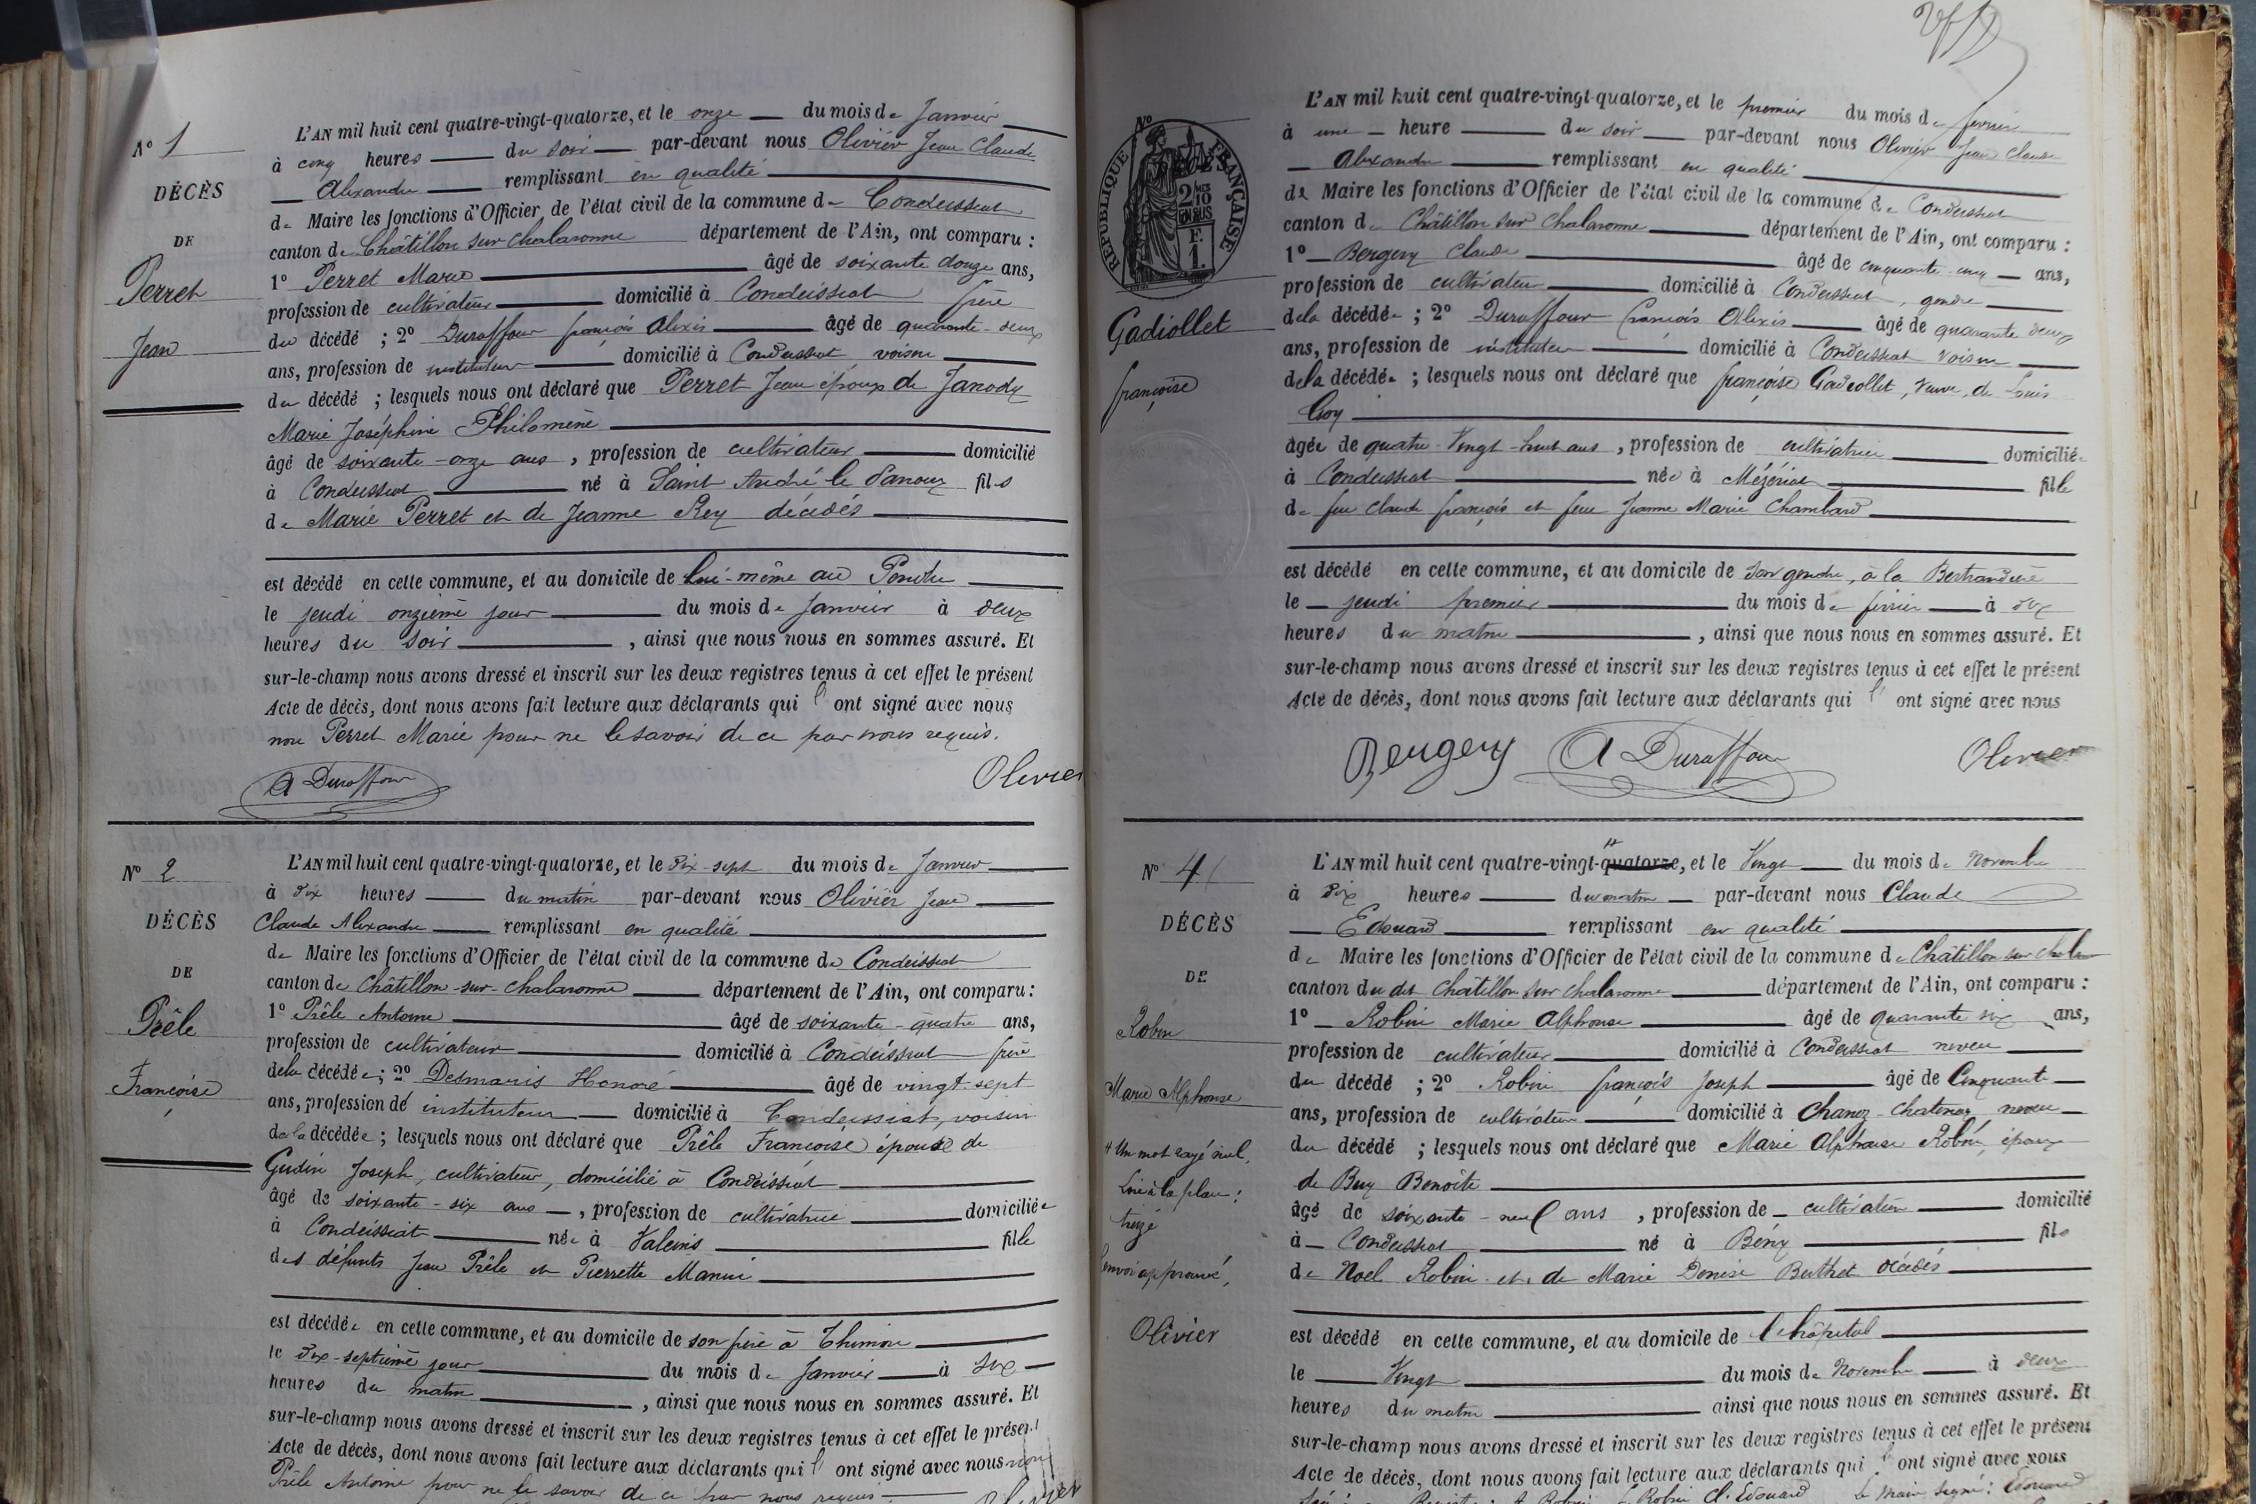 N° 1
DÉCÈS
DE
Perret
Jean
L'AN mil huit cent quatre-vingt-quatorze, et le onze du mois de Janvier
à cinq heures du soir par-devant nous Olivier Jean Claude
Alexandre remplissant en qualité
de Maire les fonctions d'Officier de l'état civil de la commune de Condeissiat
canton de Châtillon sur Chalaronne département de l'Ain, ont comparu :
1° Perret Marie âgé de soixante douze ans,
profession de cultivateur domicilié à Condeissiat frère
du décédé ; 2° Duraffour françois Alexis âgé de quarante-deux
ans, profession de instituteur domicilié à Condeissiat voisin
du décédé ; lesquels nous ont déclaré que Perret Jean époux de Janody
Marie Joséphine Philomène
âgé de soixante-onze ans, profession de cultivateur domicilié
à Condeissiat né à Saint André le Panoux fils
de Marie Perret et de Jeanne Rey décédés
est décédé en cette commune, et au domicile de lui-même au
le jeudi onzième jour du mois de Janvier à deux
heures du soir, ainsi que nous nous en sommes assuré. Et
sur-le-champ nous avons dressé et inscrit sur les deux registres tenus à cet effet le présent
Acte de décès, dont nous avons fait lecture aux déclarants qui l' ont signé avec nous
non Perret Marie pour ne le savoir de ce par nous requis.
A Duraffour Olivier
N° 2
DÉCÈS
DE
Prêle
Françoise
L'AN mil huit cent quatre-vingt-quatorze, et le dix-sept du mois de Janvier
à dix heures du matin par-devant nous Olivier Jean
Claude Alexandre remplissant en qualité
de Maire les fonctions d'Officier de l'état civil de la commune de Condeissiat
canton de Châtillon-sur-Chalaronne département de l'Ain, ont comparu :
1° Prêle Antoine âgé de soixante-quatre ans,
profession de cultivateur domicilié à Condeissiat frère
de la décédée ; 2° Desmaris Honoré âgé de vingt-sept
ans, profession de instituteur domicilié à Condeissiat, voisin
de la décédée ; lesquels nous ont déclaré que Prêle Françoise épouse de
Gudin Joseph, cultivateur, domicilié à Condeissiat
âgé de soixante-six ans, profession de cultivatrice domiciliée
à Condeissiat née à Valeins fille
des défunts Jean Prêle et Pierrette Manin
est décédée en cette commune, et au domicile de son frère à
le dix-septième jour du mois de Janvier à six
heures du matin, ainsi que nous nous en sommes assuré. Et
sur-le-champ nous avons dressé et inscrit sur les deux registres tenus à cet effet le présent
Acte de décès, dont nous avons fait lecture aux déclarants qui l' ont signé avec nous non
Prêle Antoine pour ne le savoir de ce par nous requis.
Olivier
N°
RÉPUBLIQUE FRANÇAISE
2/10 EN SUS
F. 1.
Gadiollet
françoise
L'AN mil huit cent quatre-vingt-quatorze, et le premier du mois de février
à une heure du soir par-devant nous Olivier Jean Claude
Alexandre remplissant en qualité
de Maire les fonctions d'Officier de l'état civil de la commune de Condeissiat
canton de Châtillon sur Chalaronne département de l'Ain, ont comparu :
1° Bengery Claude âgé de cinquante-cinq ans,
profession de cultivateur domicilié à Condeissiat, gendre
de la décédée ; 2° Duraffour françois Alexis âgé de quarante deux
ans, profession de instituteur domicilié à Condeissiat voisin
de la décédée ; lesquels nous ont déclaré que françoise Gadiollet, veuve, de Louis
Goy
âgée de quatre-Vingt-huit ans, profession de cultivatrice domiciliée
à Condeissiat née à Mézériat fille
de feu Claude françois et feue Jeanne Marie Chambard
est décédé en cette commune, et au domicile de son gendre, à la Bertrandière
le jeudi premier du mois de février à six
heures du matin, ainsi que nous nous en sommes assuré. Et
sur-le-champ nous avons dressé et inscrit sur les deux registres tenus à cet effet le présent
Acte de décès, dont nous avons fait lecture aux déclarants qui l' ont signé avec nous
Bengery A Duraffour Olivier
N° 4
DÉCÈS
DE
Robin
Marie Alphonse
# Un mot rayé nul.
Lire à la place :
treize
Renvoi approuvé,
Olivier
L'AN mil huit cent quatre-vingt-quatorze, et le Vingt du mois de Novembre
à dix heures du matin par-devant nous Claude
Edouard remplissant en qualité
de Maire les fonctions d'Officier de l'état civil de la commune de Châtillon sur Chalar
canton du dit Châtillon sur Chalaronne département de l'Ain, ont comparu :
1° Robin Marie Alphonse âgé de quarante six ans,
profession de cultivateur domicilié à Condeissiat neveu
du décédé ; 2° Robin françois Joseph âgé de Cinquante
ans, profession de cultivateur domicilié à Chanoz-Chatenay neveu
du décédé ; lesquels nous ont déclaré que Marie Alphonse Robin, époux
de Buy Benoîte
âgé de soixante-neuf ans, profession de cultivateur domicilié
à Condeissiat né à Bény fils
de Noel Robin et de Marie Denise Buthet décédés
est décédé en cette commune, et au domicile de l'hôpital
le Vingt du mois de Novembre à deux
heures du matin ainsi que nous nous en sommes assuré. Et
sur-le-champ nous avons dressé et inscrit sur les deux registres tenus à cet effet le présent
Acte de décès, dont nous avons fait lecture aux déclarants qui l' ont signé avec nous
Robin Cl. Edouard le maire signé : Edouard